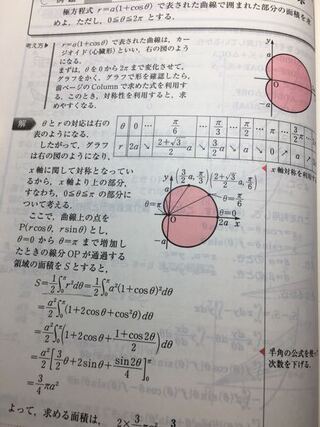 極方程式 r=a(1+cosθ) で表された曲線で囲まれた部分の面積を求
めよ。ただし，0≦θ≦2π とする。
考え方 r=a(1+cosθ) で表された曲線は，カー
ジオイド(心臓形)といい，右の図のよう
になる。
まずは，θ を 0 から 2π まで変化させて，
グラフをかく。グラフで形を確認したら，
前ページの Column で求めた式を利用す
る。このとき，対称性を利用すると，求
めやすくなる。
y
a
O
-a
解 θ と r の対応は右の
表のようになる。
したがって，グラフ
は右の図のようになり，
θ 0 … π/6 … π/3 … π/2 … π … 3/2π
r 2a ↘ (2+√3)/2 a ↘ 3/2 a ↘ a ↘ 0 ↗ a
x 軸に関して対称となってい
るから，x 軸より上の部分，
すなわち，0≦θ≦π の部分に
ついて考える。
ここで，曲線上の点を
P(rcosθ, rsinθ) とし，
θ=0 から θ=π まで増加し
たときの線分 OP が通過する
領域の面積を S とすると，
y (3/2 a, π/3) ((2+√3)/2 a, π/6)
a
θ=π/6
θ=π
θ=0
O
2a x
-a
x 軸対称を利用す
S=1/2∫₀^π r²dθ=1/2∫₀^π a²(1+cosθ)²dθ
=a²/2∫₀^π(1+2cosθ+cos²θ)dθ
=a²/2∫₀^π(1+2cosθ+(1+cos2θ)/2)dθ
=a²/2[3/2θ+2sinθ+sin2θ/4]₀^π
=3/4πa²
半角の公式を使って
次数を下げる。
よって，求める面積は，